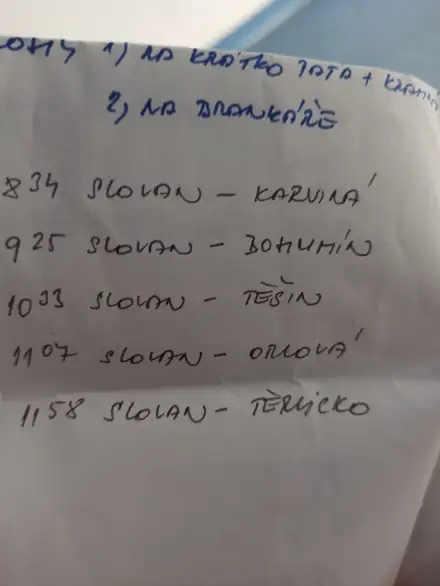 1) NA KRÁTKO TATA +
2) NA BRANKÁŘE
8 34 SLOVAN - KARVINÁ
9 25 SLOVAN - BOHUMÍN
10 33 SLOVAN - TĚŠÍN
11 07 SLOVAN - ORLOVÁ
11 58 SLOVAN - TĚRLICKO